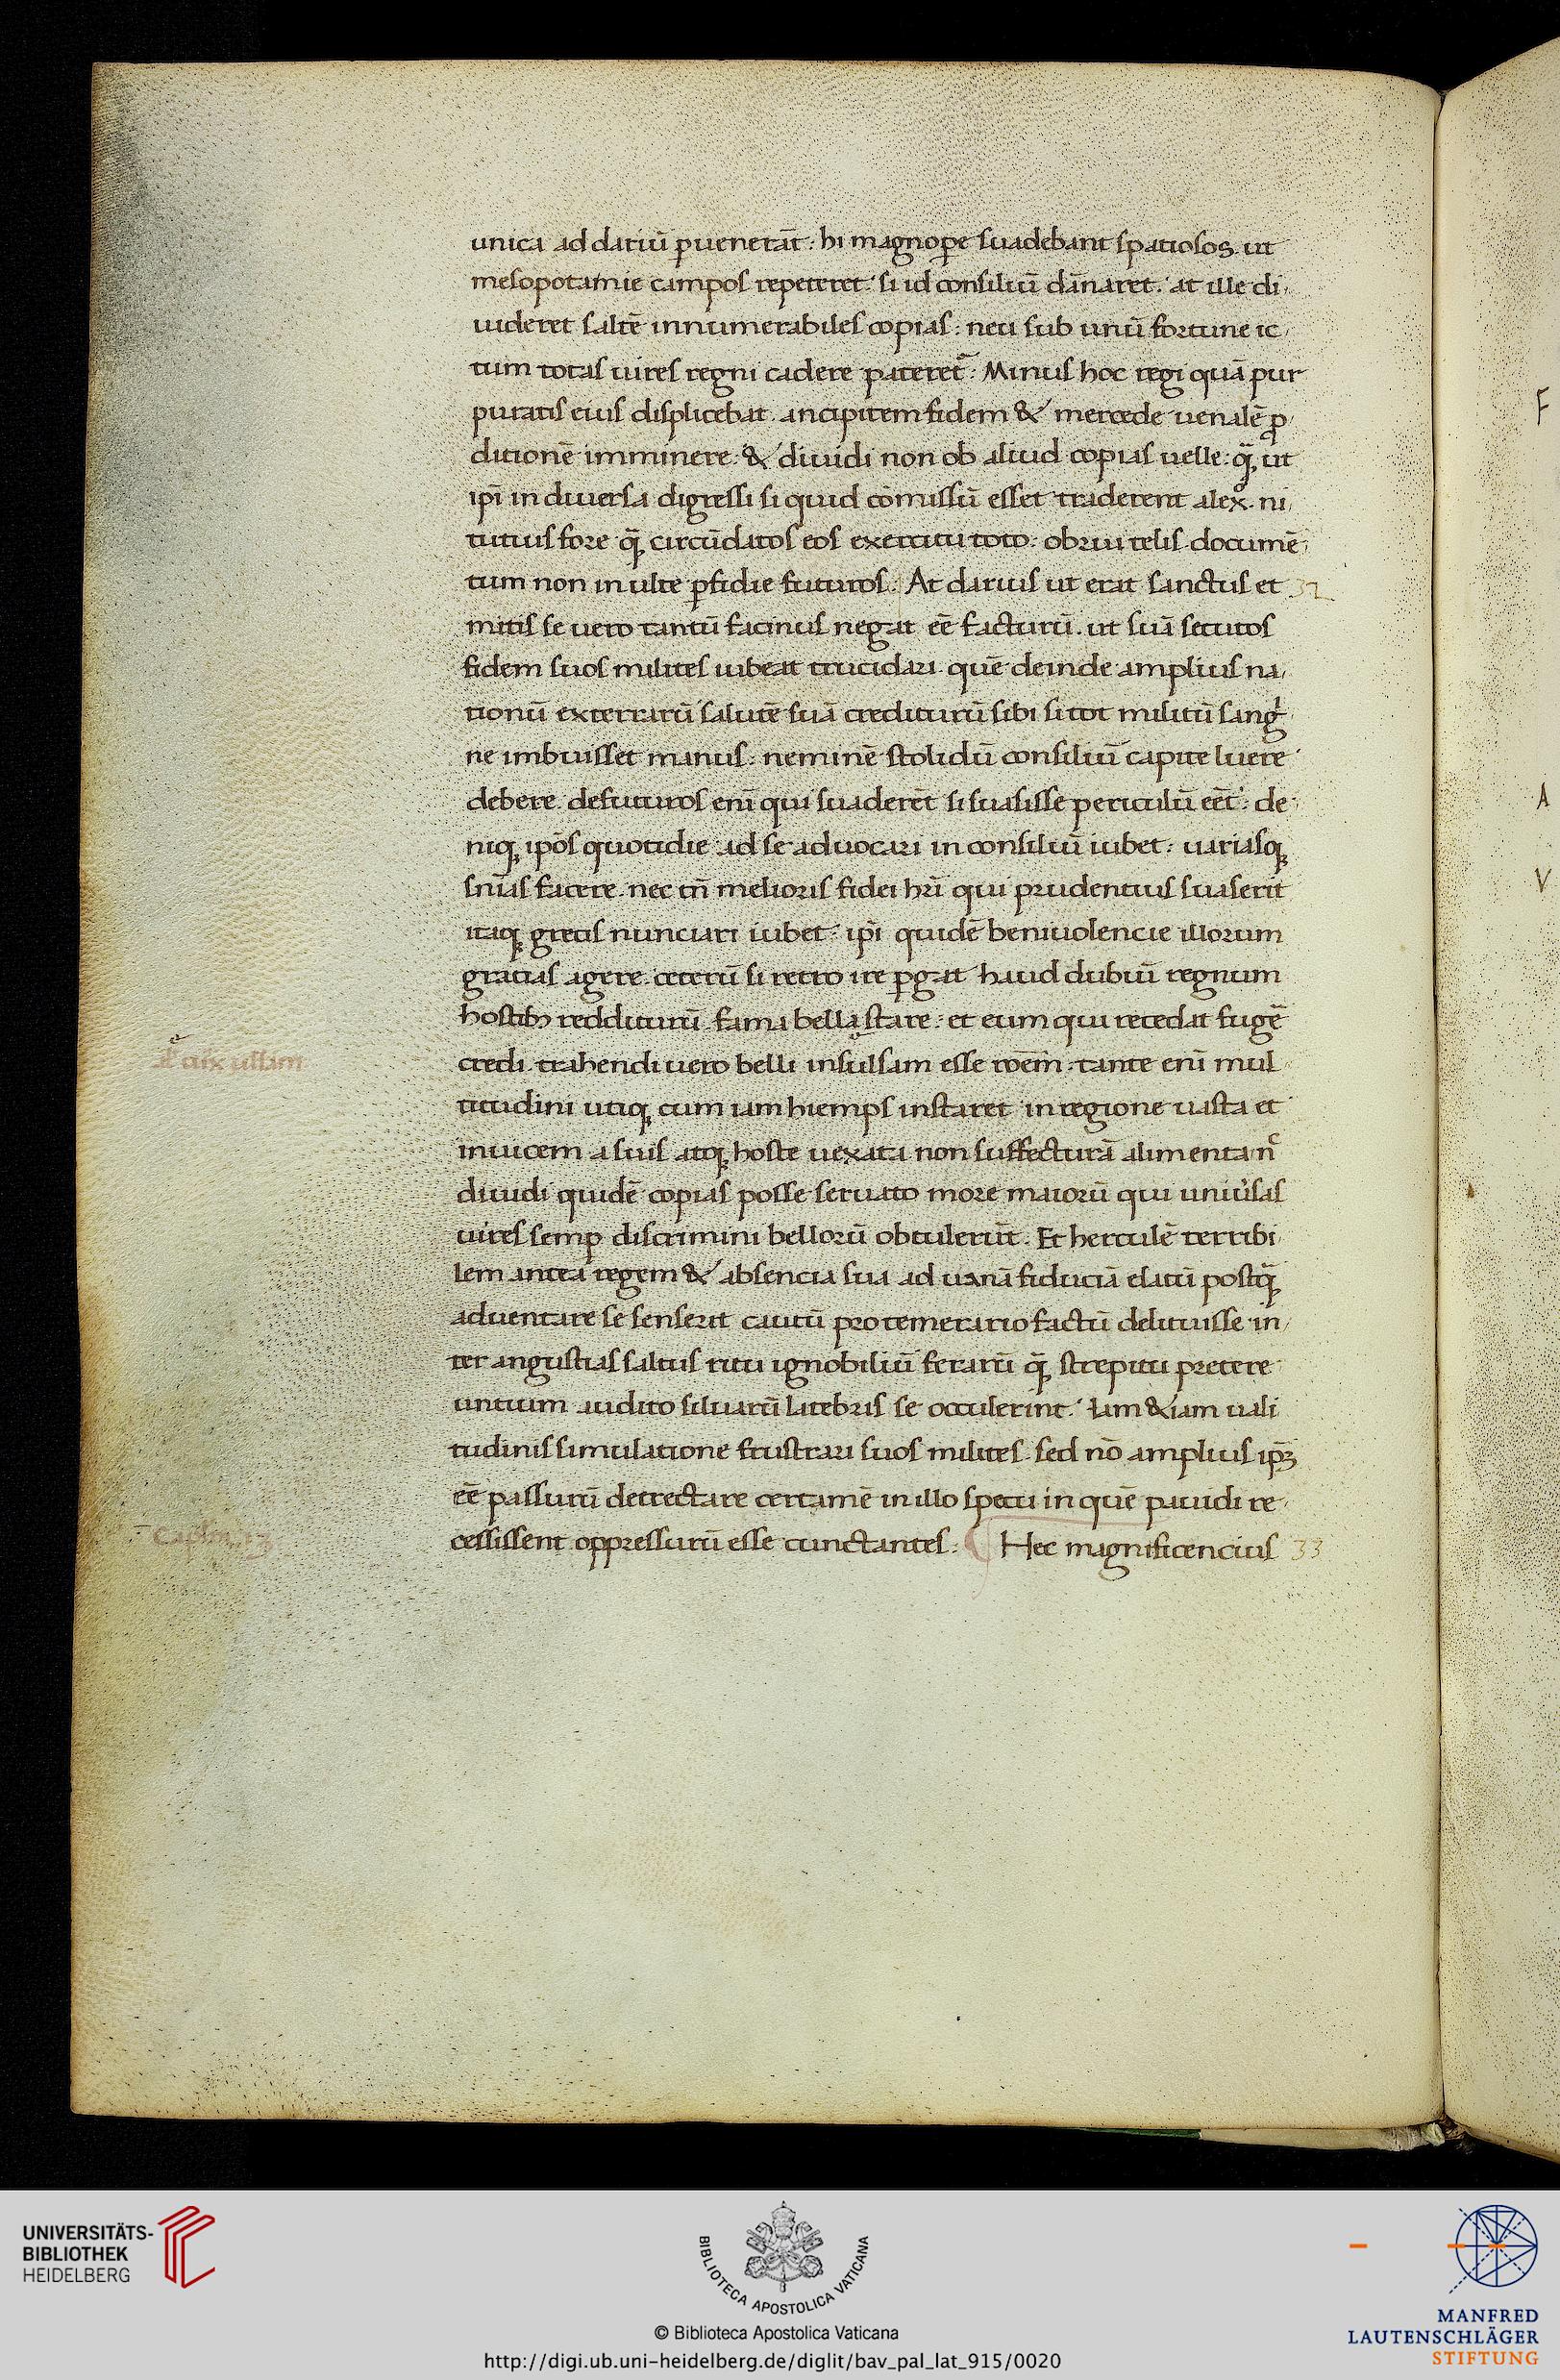 unica ad dariū ꝑuenerāt. hi magnopere suadebant spatiosos ut
mesopotamie campos repeteret. si id consiliū dānaret. at ille di
uideret saltē innumerabiles copias. neu sub unū fortune ic
tum totas uires regni cadere pateret̃. Minus hoc regi quā pur
puratis eius displicebat. ancipitem fidem & mercede uenalē ꝓ
ditionē imminere. & diuidi non ob aliud copias uelle. qͣꝫ ut
ip̄i in diuersa digressi si quid cōmissū esset traderent alexͦ. ni
tutius fore qͣꝫ circūdatos eos exercitu toto. obrui telis. documē
tum non inulte ꝑfidie futuros. At darius ut erat sanctus et 32
mitis se uero tantū facinus negat eē facturū. ut suā secutos
fidem suos milites iubeat trucidari. quē deinde amplius na
tionū exterrarū salutē suā crediturū sibi si tot militū sangͥ
ne imbuisset manus. neminē stolidū consiliū capite luere
debere. defuturos eni̅ qui suaderēt si suasisse periculū eēt. de
niqꝫ ip̄os quotidie ad se aduocari in consiliū iubet. uariasqꝫ
sn̄ias facere. nec tn̄ melioris fidei hr̄i qui prudentius suaserit
itaqꝫ grecis nunciari iubet. ip̄i quidē beniuolencie illorum
gracias agere. ceterū si retro ire ꝑgat haud dubiū regnum
hostibꝫ redditurū. fama bella stare. et eum qui recedat fugē
credi. trahendi uero belli insulsam esse rōem. tante eni̅ mul
al' uix ullam
titudini utiqꝫ cum iam hiemps instaret in regione uasta et
inuicem a suis atqꝫ hoste uexata non suffecturā alimenta. nͨ
diuidi quidē copias posse seruato more maiorū qui uniu̓sas
uires semꝑ discrimini bellorū obtulerūt. Et herculē terribi
lem antea regem & absencia sua ad uanā fiduciā elatū postqͣꝫ
aduentare se senserit cautū pro temerario factū delituisse in
ter angustias saltus ritu ignobiliū ferarū qͣꝫ strepitu pretere
untium audito siluarū latebris se occulerint. Iam & iam uali
tudinis simulatione frustrari suos milites. sed nō amplius ip̄ꝫ
eē passurū detrectare certamē in illo specu in quē pauidi re
cessissent oppressurū esse cunctantes. Hec magnificencius 33
UNIVERSITÄTS-
BIBLIOTHEK
HEIDELBERG
BIBLIOTECA APOSTOLICA VATICANA
© Biblioteca Apostolica Vaticana
http://digi.ub.uni-heidelberg.de/diglit/bav_pal_lat_915/0020
MANFRED
LAUTENSCHLÄGER
STIFTUNG
F
A
V